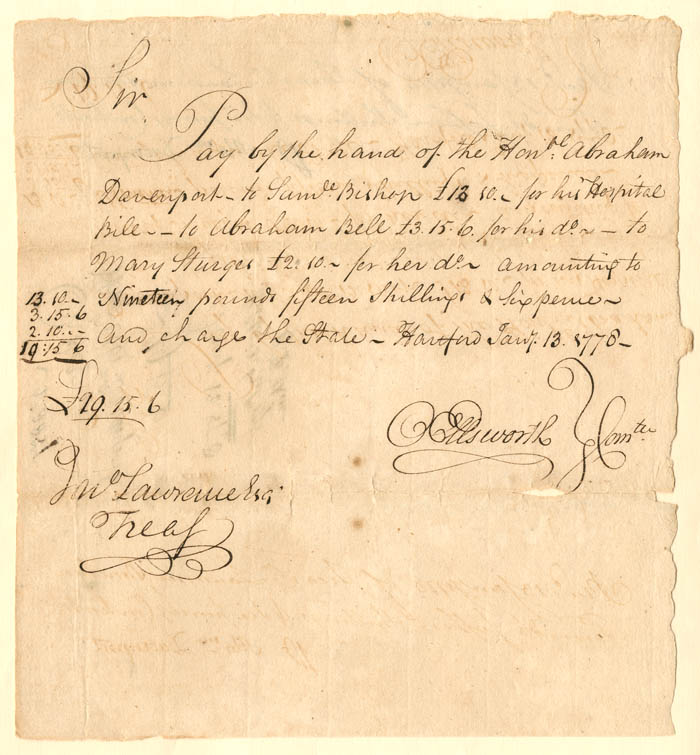 Sir
Pay by the hand of the Honble Abraham
Davenport - to Sumde Bishop £13 10 - for his Hospital
Bill - - to Abraham Bell £3.15.6. for his do - - to
Mary Sturges £2.10 - for her do - amounting to
Nineteen pounds fifteen Shillings & Sixpence -
and charge the State - Hartford Jany. 13. 1778 -
13.10 -
3.15.6
2.10. -
19.15 6
£19.15.6
OEllsworth } Comtee
Jno Lawrence Esq
Treas